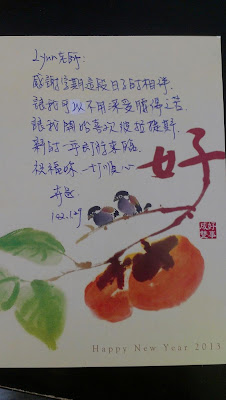 Lynn老師：
感謝字期這段日子的相伴
讓我可以不用深受腰傷之苦
讓我開始喜歡後拉提斯
新的一年即將來臨
祝福妳一切順心
102.1.29
好
好事
成雙
Happy New Year 2013